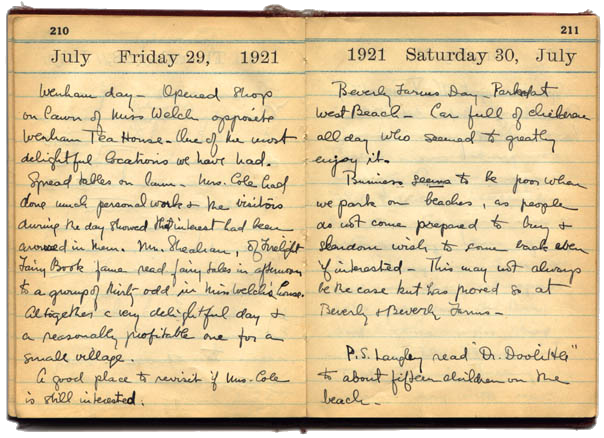 210
July Friday 29, 1921
Wenham day – Opened Shop
on Lawn of Miss Welch opposite
Wenham Tea House. One of the most
delightful locations we have had.
Spread tables on lawn. Mrs. Cole had
done much personal work & the visitors
during the day showed that interest had been
aroused in them. Mr. Sheahan, of Firelight
Fairy Book fame read fairy tales in afternoon
to a group of thirty odd in Miss Welch's house.
Altogether a very delightful day &
a reasonally profitable one for a
small village.
A good place to revisit if Mrs. Cole
is still interested.
211
1921 Saturday 30, July
Beverly Farms Day – Parked at
West Beach – Car full of children
all day who seemed to greatly
enjoy it.
Business seems to be poor when
we park on beaches, as people
do not come prepared to buy &
seldom wish to come back even
if interested – This may not always
be the case but has proved so at
Beverly & Beverly Farms –
P.S. Langley read "Dr. Doolittle"
to about fifteen children on the
beach –